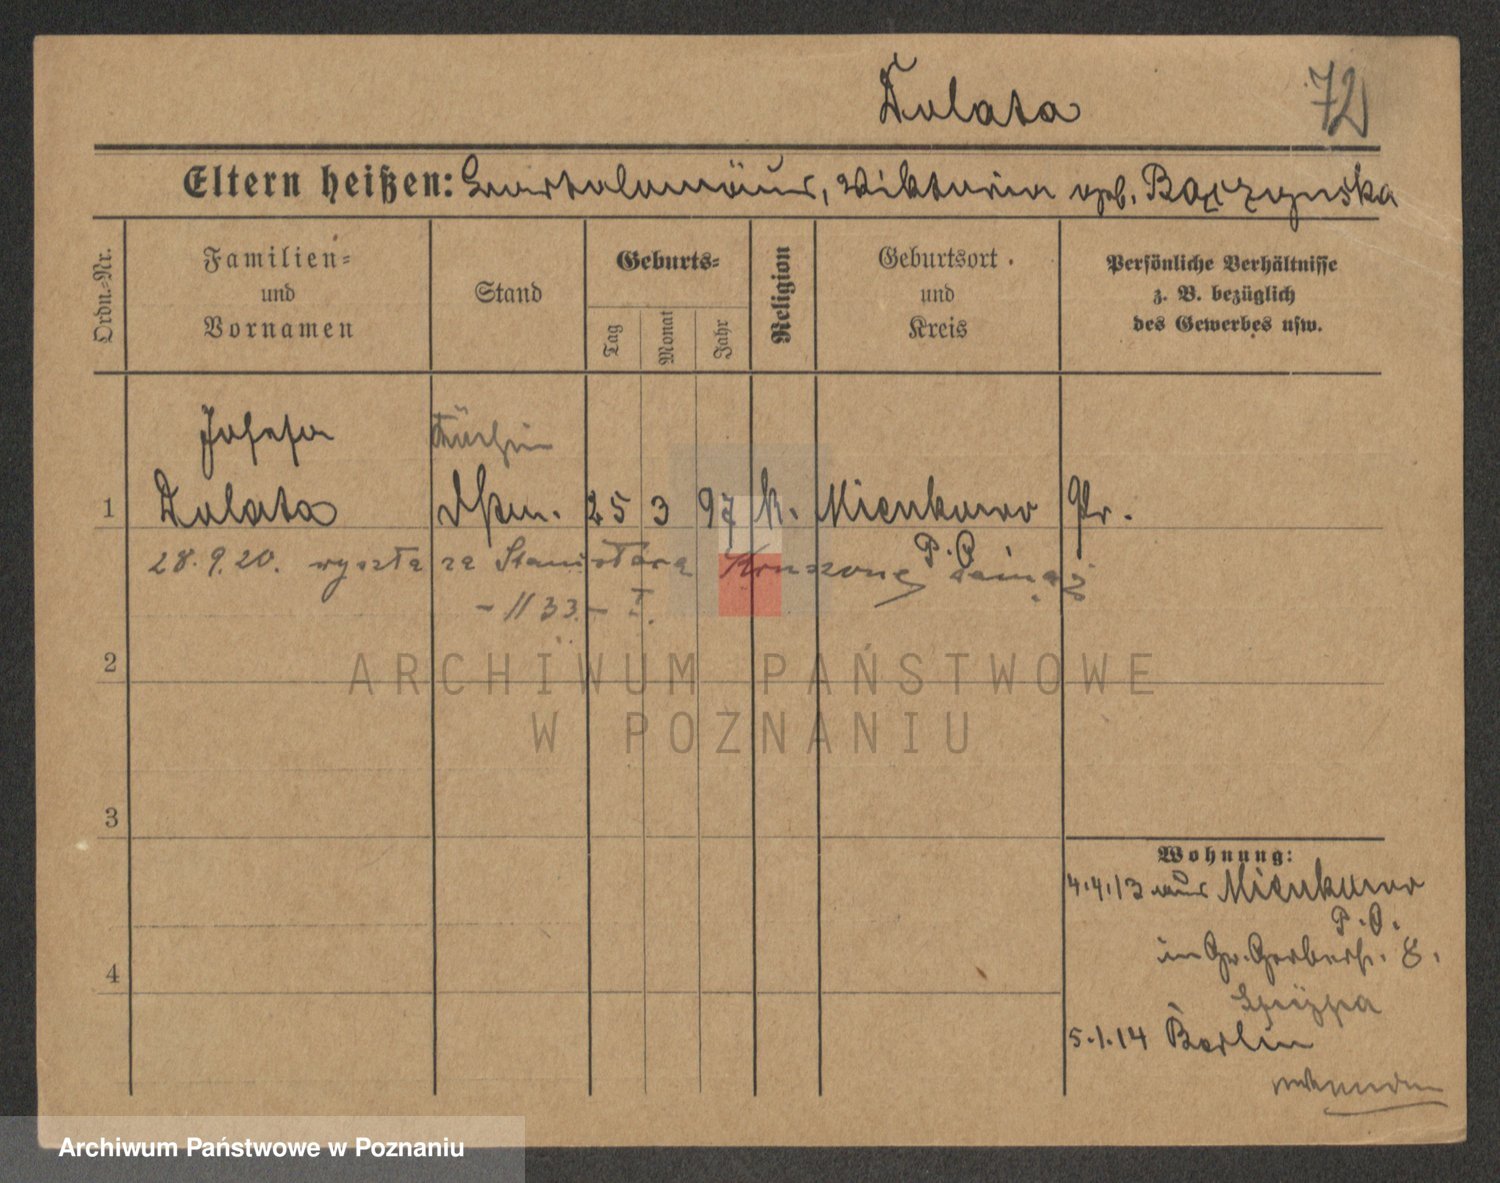 Dolata
72
Eltern heißen: Bartolomäus, Viktoria geb. Bączynska
Ordn.-Nr.
Familien-
und
Vornamen
Stand
Geburts-
Tag
Monat
Jahr
Religion
Geburtsort
und
Kreis
Persönliche Verhältnisse
z. B. bezüglich
des Gewerbes usw.
Josefa
Köchin
1 Dolata 25 3 97 k. Mienkowo Pr.
P. O.
28.9.20. wyszła za Stanisława
- 1133 - I.
2
3
4
Wohnung:
4.4.13 aus Mienkowo
P. O.
in Gr. Gerberstr. 8.
5.1.14 Berlin
ARCHIWUM PAŃSTWOWE
W POZNANIU
Archiwum Państwowe w Poznaniu